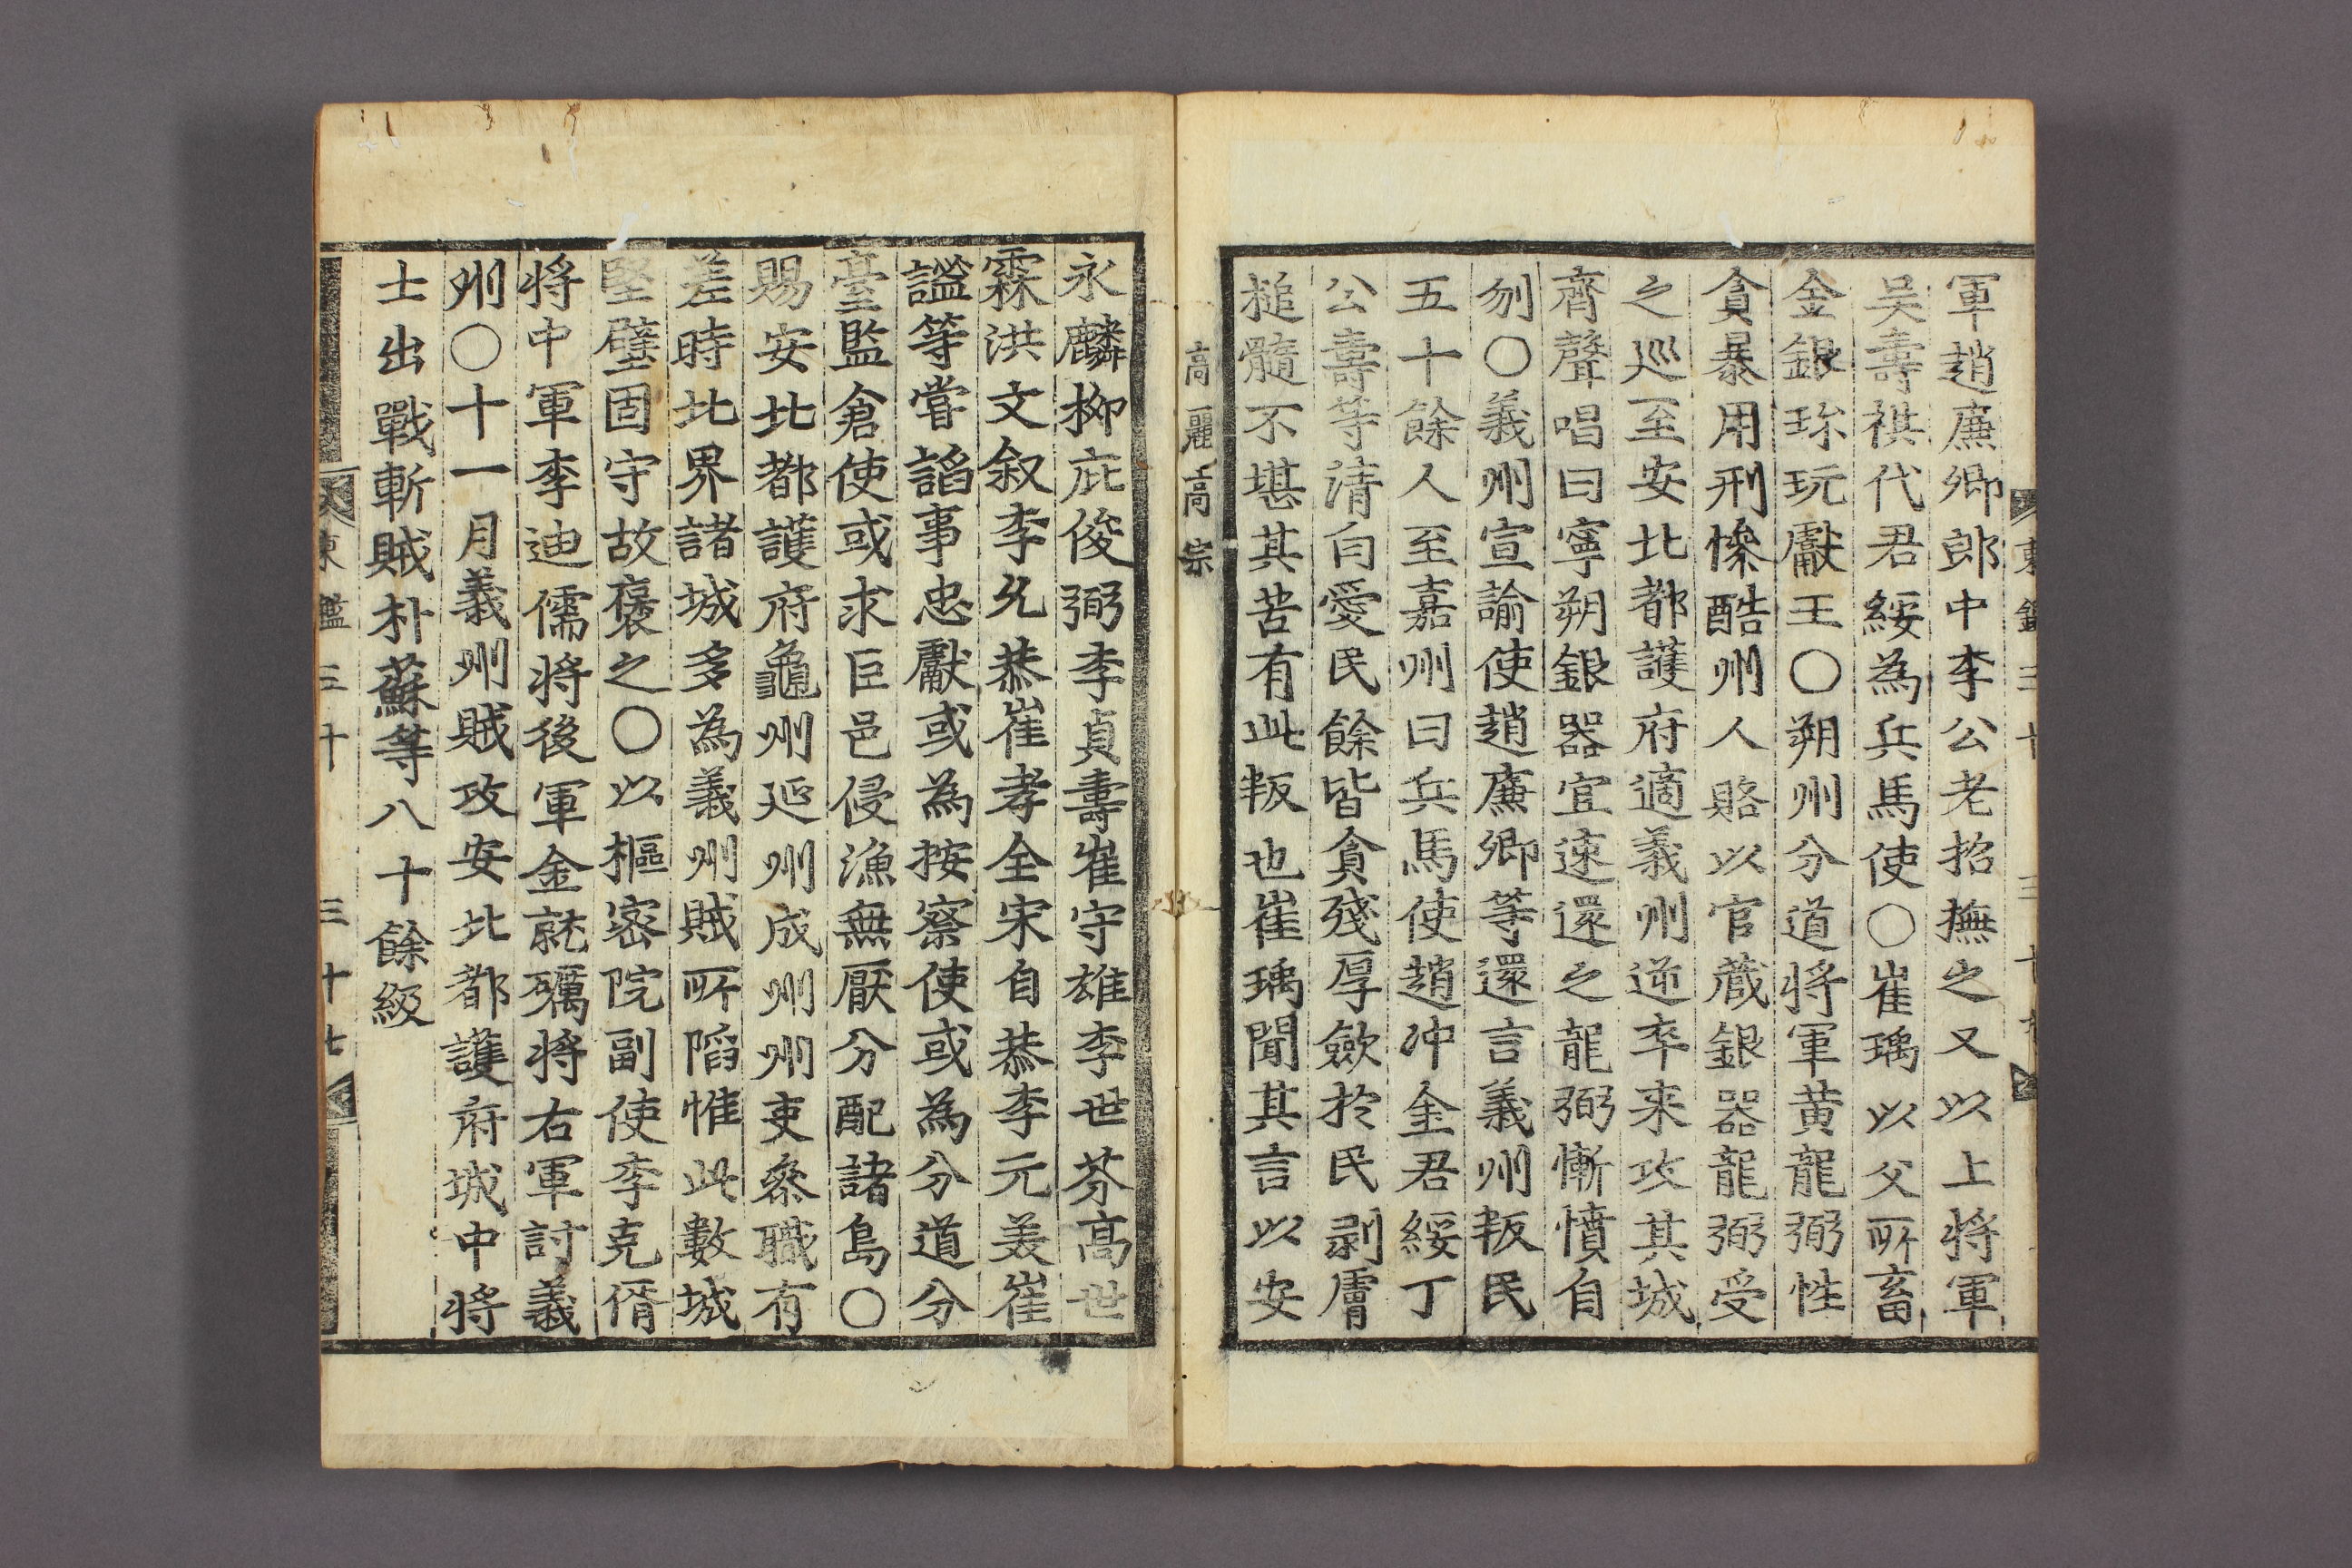 軍趙廉卿郎中李公老招撫之又以上將軍
吳壽祺代君綏為兵馬使○崔瑀以父所畜
金銀珎玩獻王○朔州分道將軍黃龍弼性
貪暴用刑慘酷州人賂以官藏銀器龍弼受
之巡至安北都護府適義州逆卒来攻其城
齊聲唱曰寧朔銀器宜速還之龍弼慚憤自
刎○義州宣諭使趙廉卿等還言義州叛民
五十餘人至嘉州曰兵馬使趙冲金君綏丁
公壽等清白愛民餘皆貪殘厚斂於民剥膚
槌髓不堪其苦有此叛也崔瑀聞其言以安
高麗高宗
永麟柳庇俊弼李貞壽崔守雄李世芬高世
霖洪文叙李允恭崔孝全宋自恭李元美崔
謐等嘗諂事忠獻或為按察使或為分道分
臺監倉使或求巨邑侵漁無厭分配諸島○
賜安北都護府龜州延州成州州吏叅職有
差時北界諸城多為義州賊所陷惟此數城
堅壁固守故褒之○以樞密院副使李克偦
將中軍李迪儒將後軍金就礪將右軍討義
州○十一月義州賊攻安北都護府城中將
士出戰斬賊朴蘇等八十餘級
東鑑三十 三十七